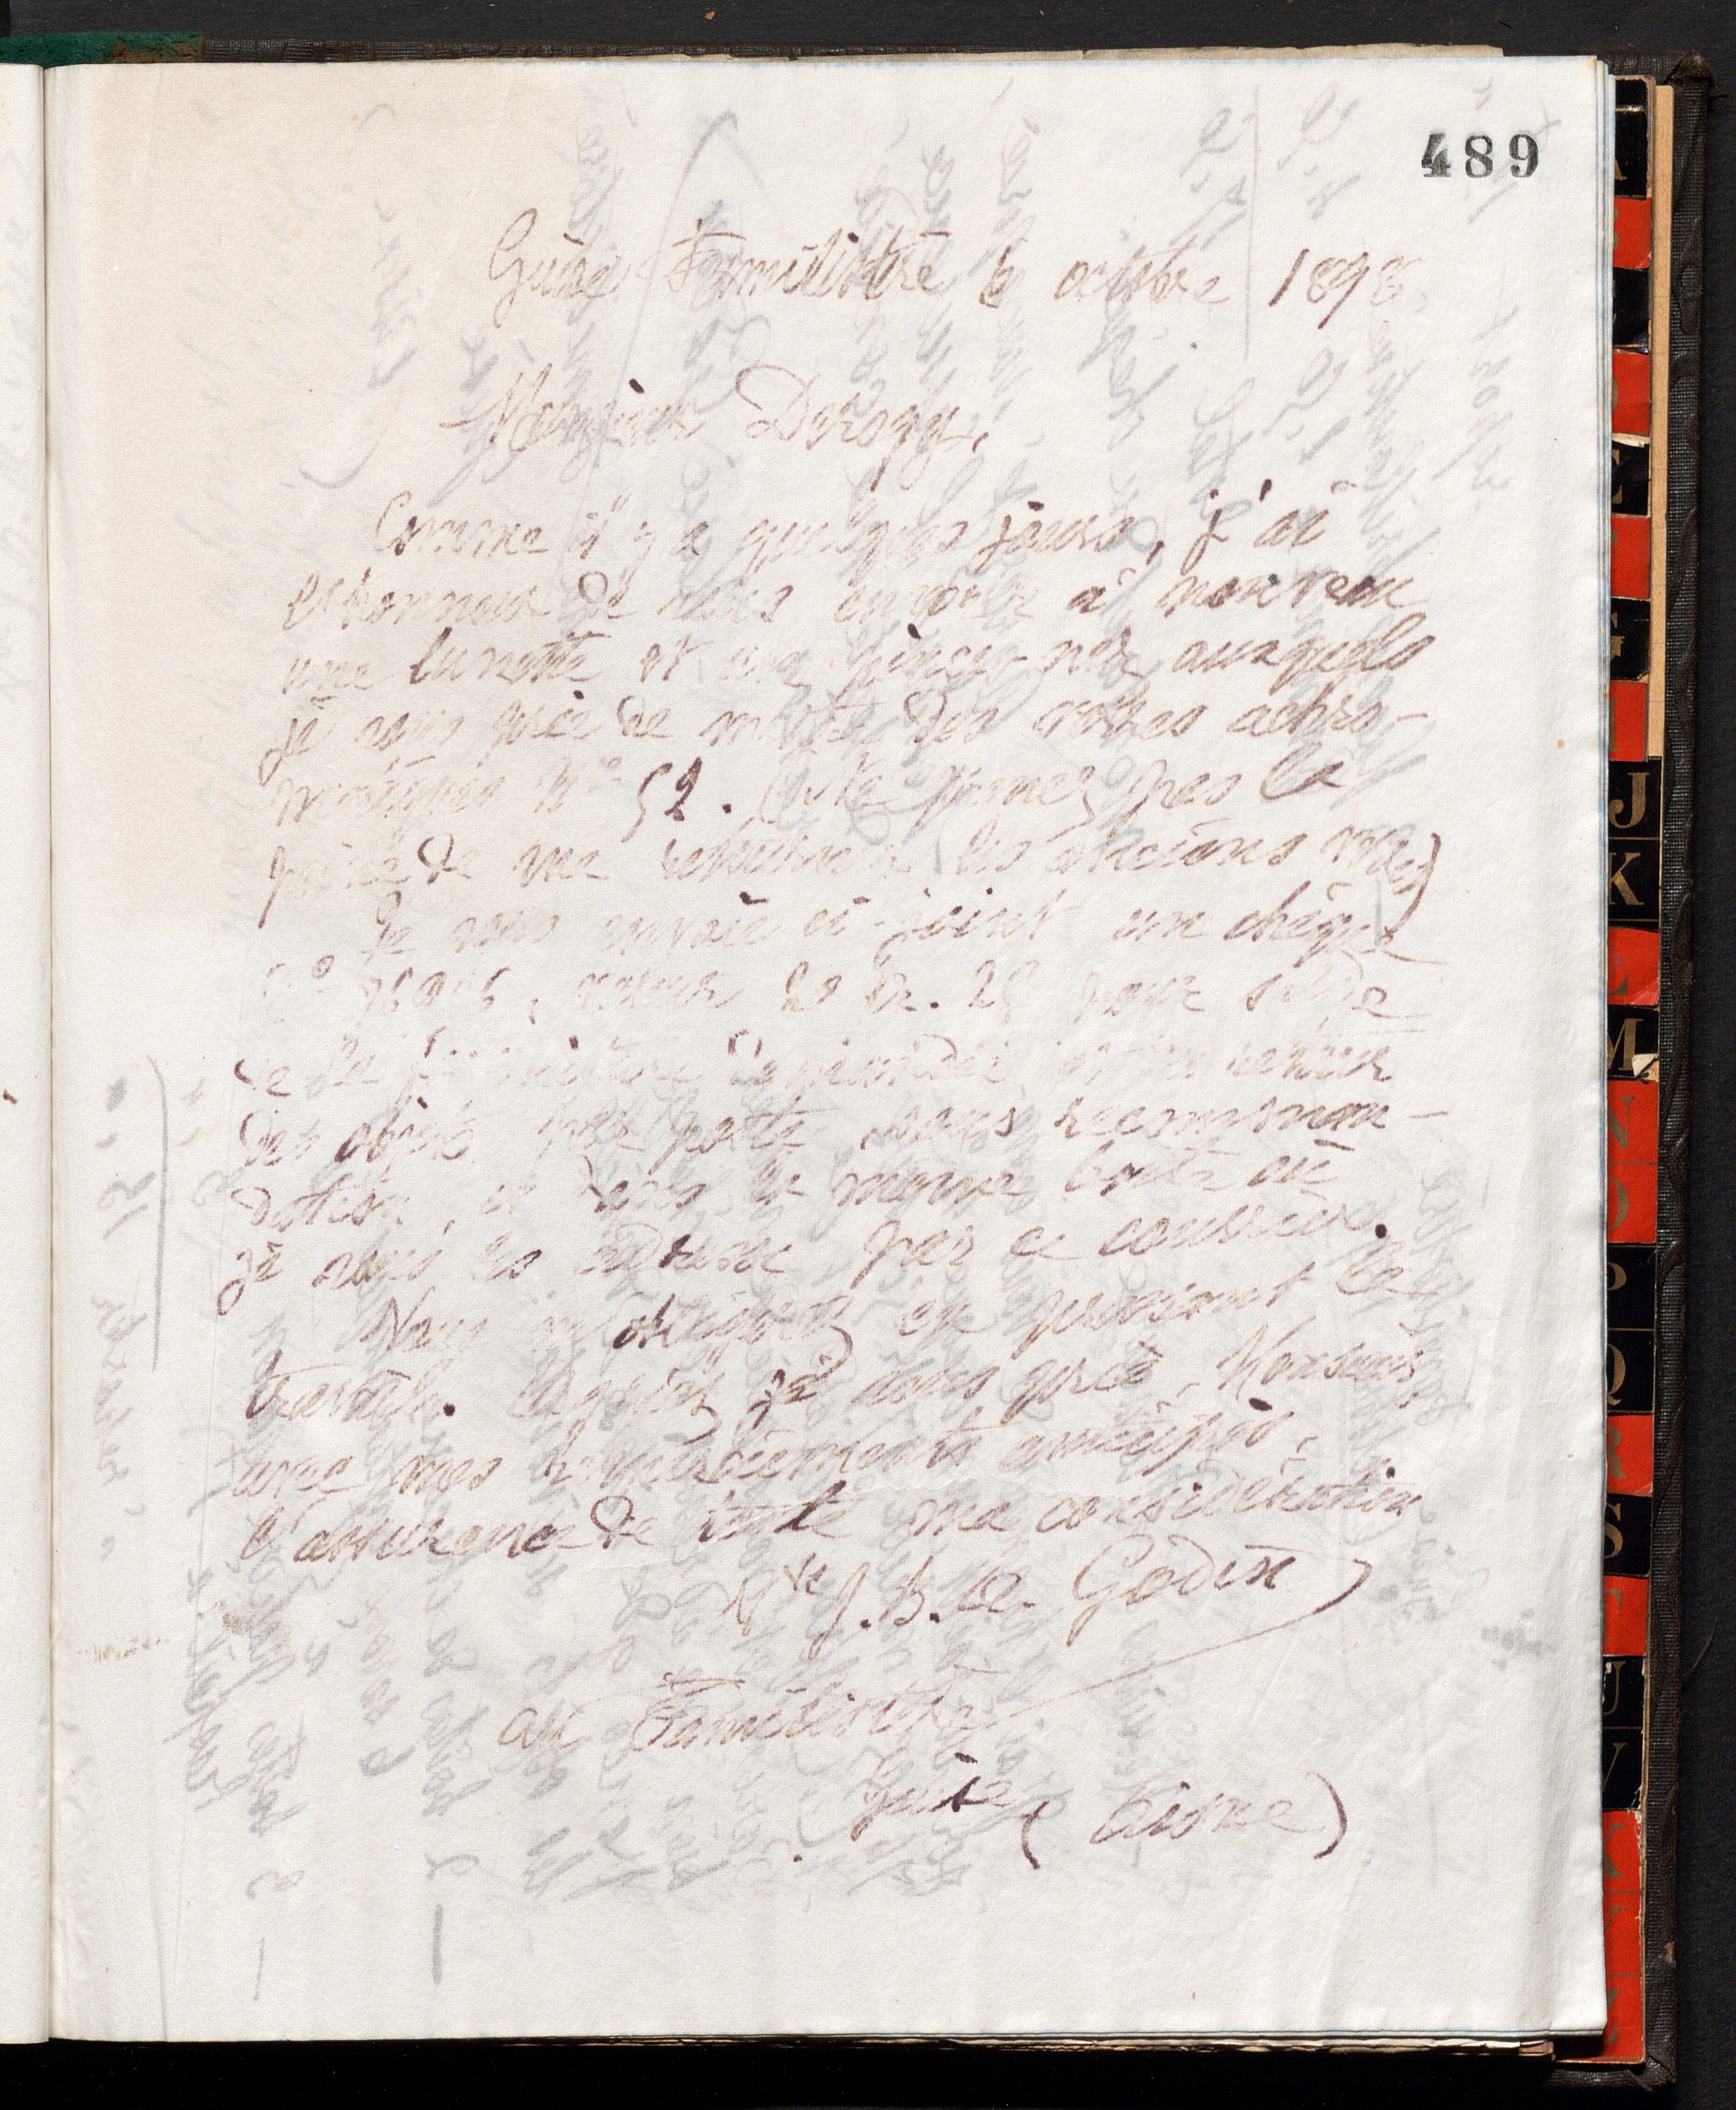 489
Guise Familistère 6 octobre 1898
Monsieur Derogy,
Comme il y a quelques jours, j'ai
l'honneur de vous envoyer à nouveau
une lunette et un pince-nez auxquels
je vous prie de mettre des verres achro-
matiques No 52. Ne prenez pas la
peine de me retourner les anciens verres
Je vous envoie ci-joint un chèque
valeur 20 fr. 25 pour solde
de la fourniture demandée et du retour
des objets par poste, sous recomman-
dation, et dans la même boîte où
je vous les adresse par ce courrier.
Vous m'obligerez en pressant le
travail. Agréez, je vous prie, Monsieur,
avec mes remerciements anticipés,
l'assurance de toute ma considération
Vve J. B. A. Godin
au Familistère
Guise (Aisne)